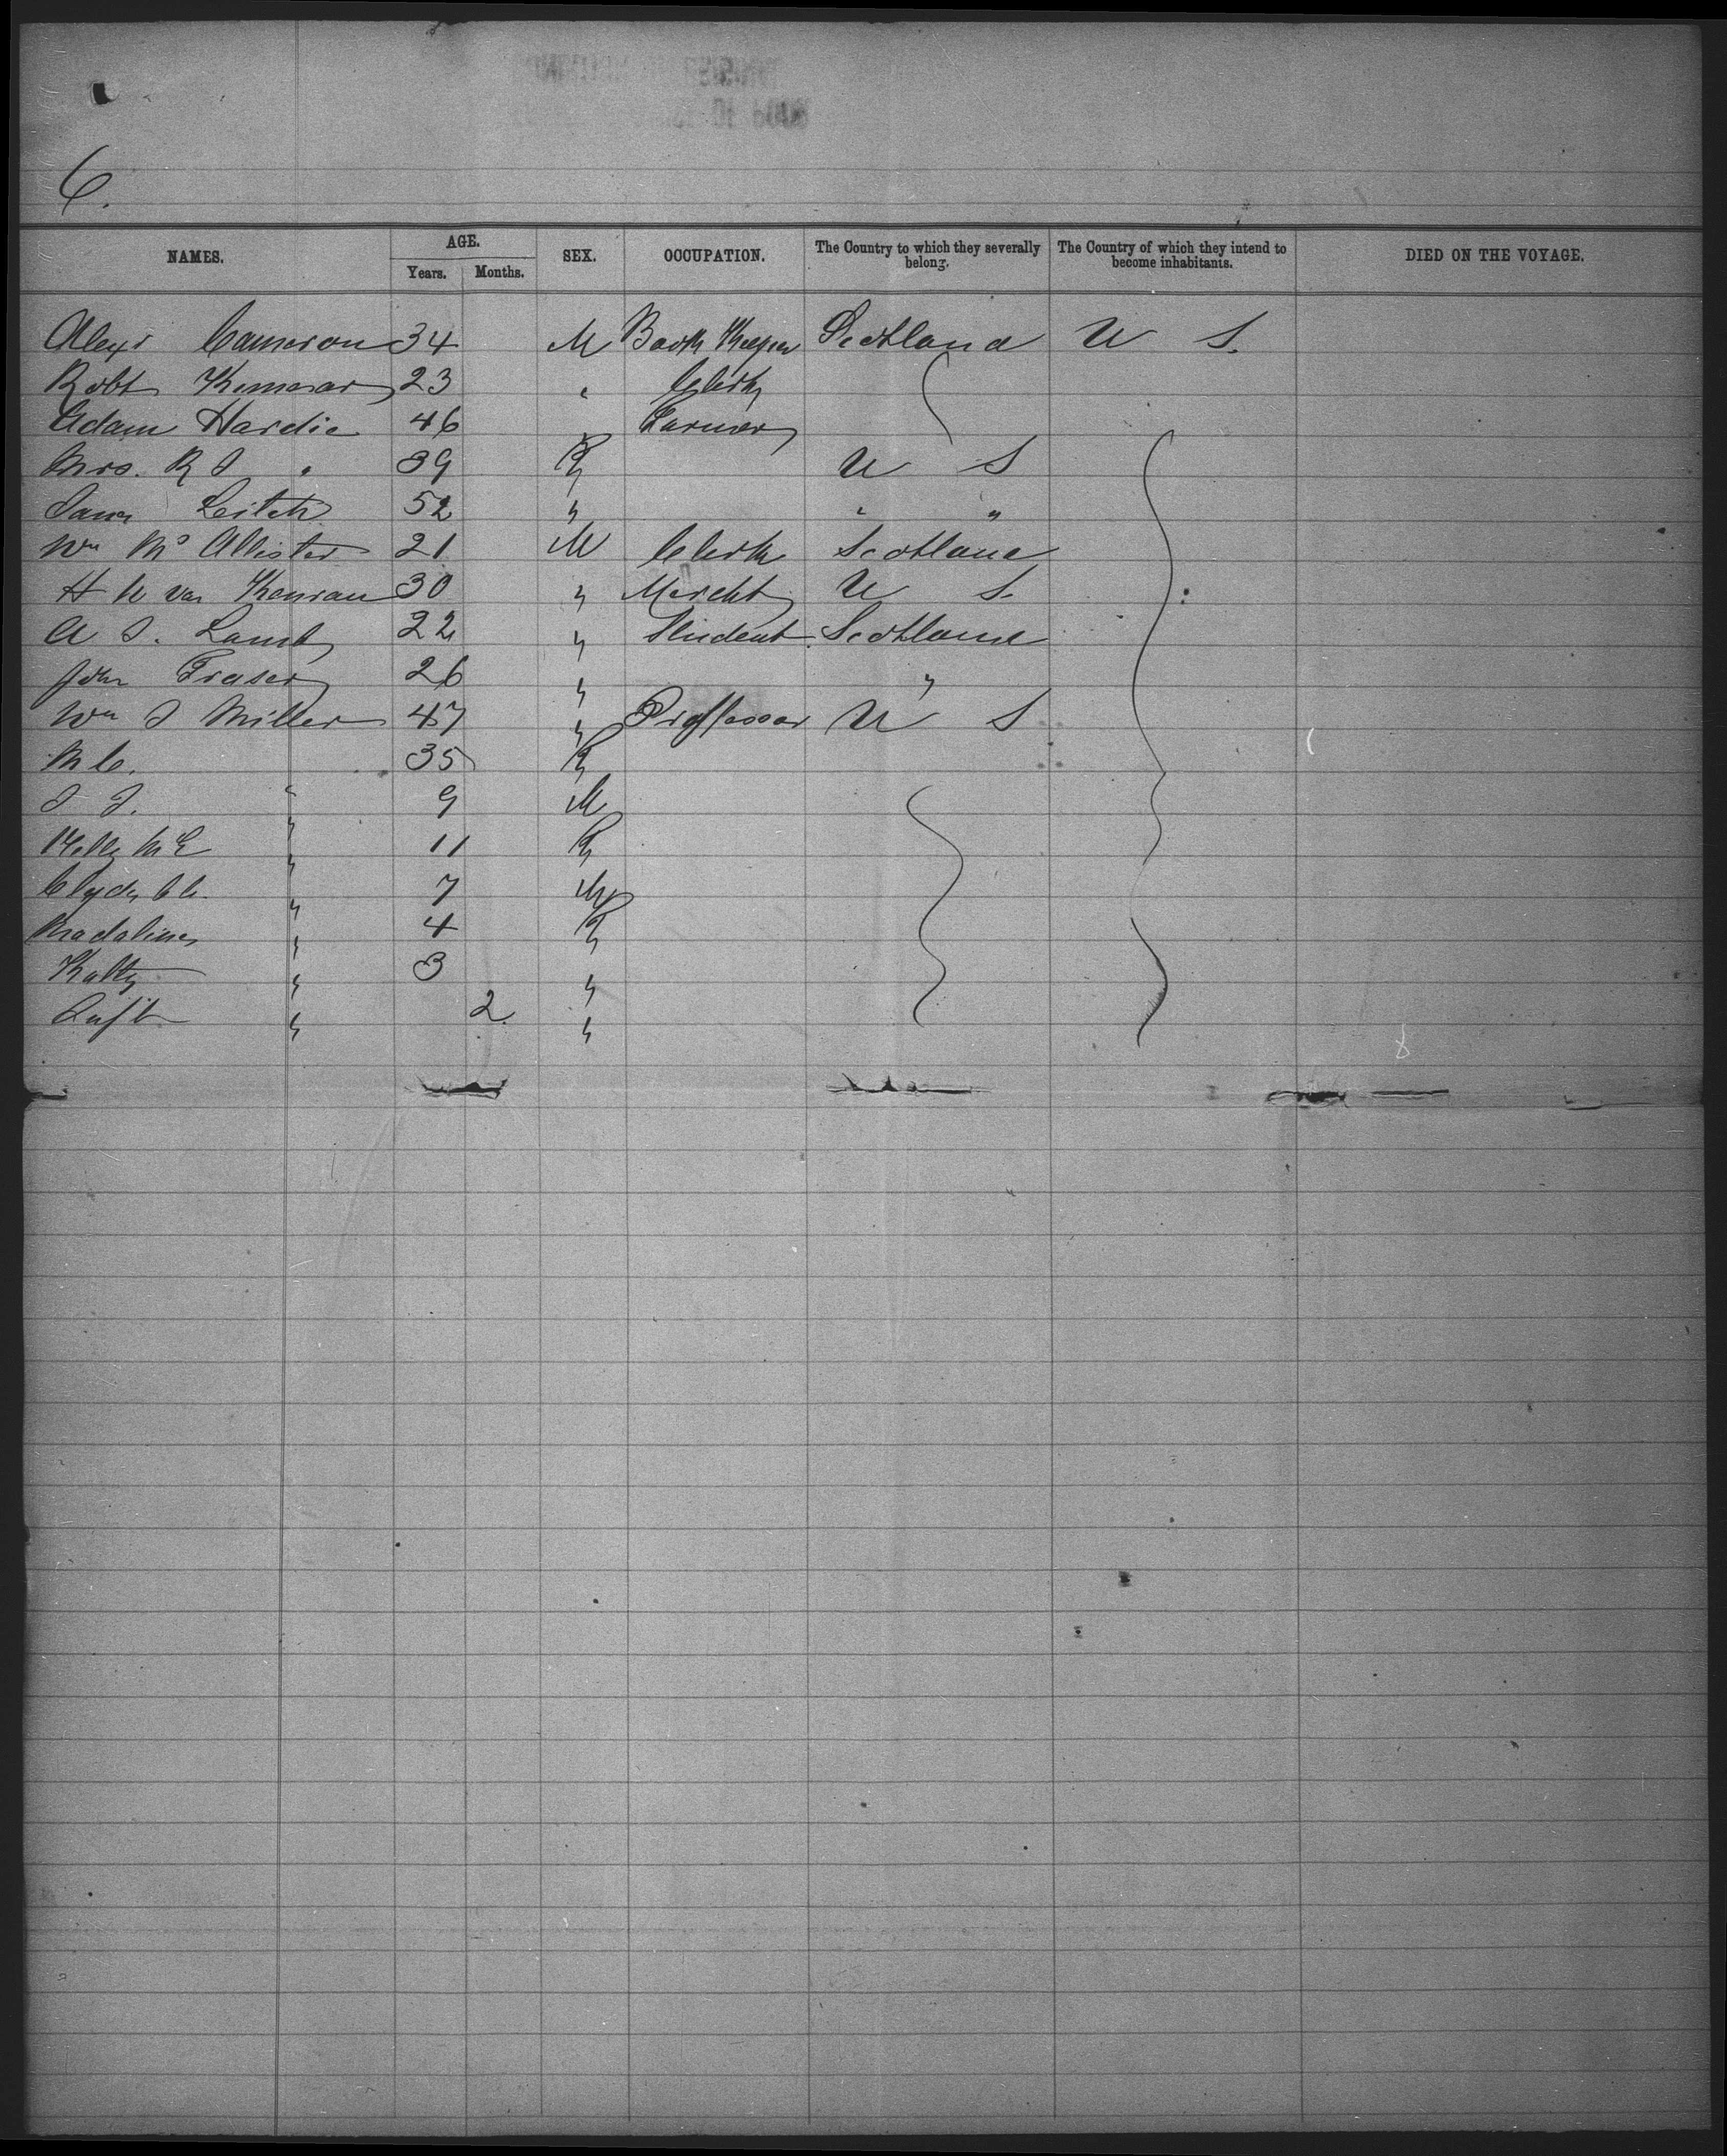 6.
NAMES. AGE. SEX. OCCUPATION. The Country to which they severally belong. The Country of which they intend to become inhabitants. DIED ON THE VOYAGE.
Years. Months.
Alexr Cameron 34 M Book Keeper Scotland U S.
Robt 23 " Clerk
Adam Hardie 46 " Farmer
Mrs. R J " 39 F U S
Leitch 52 " " "
Wm Mc Allister 21 M Clerk Scotland
H W Van 30 " Mercht U S.
A J. Lamb 22 " Student Scotland
John Fraser 26 " "
Wm J Miller 47 " Proffessor U S
M C. 35 F
J J. " 9 M
M E " 11 F
Clyde C C. " 7 M
Madaline " 4 F
Katty " 3 "
Inft " 2. "